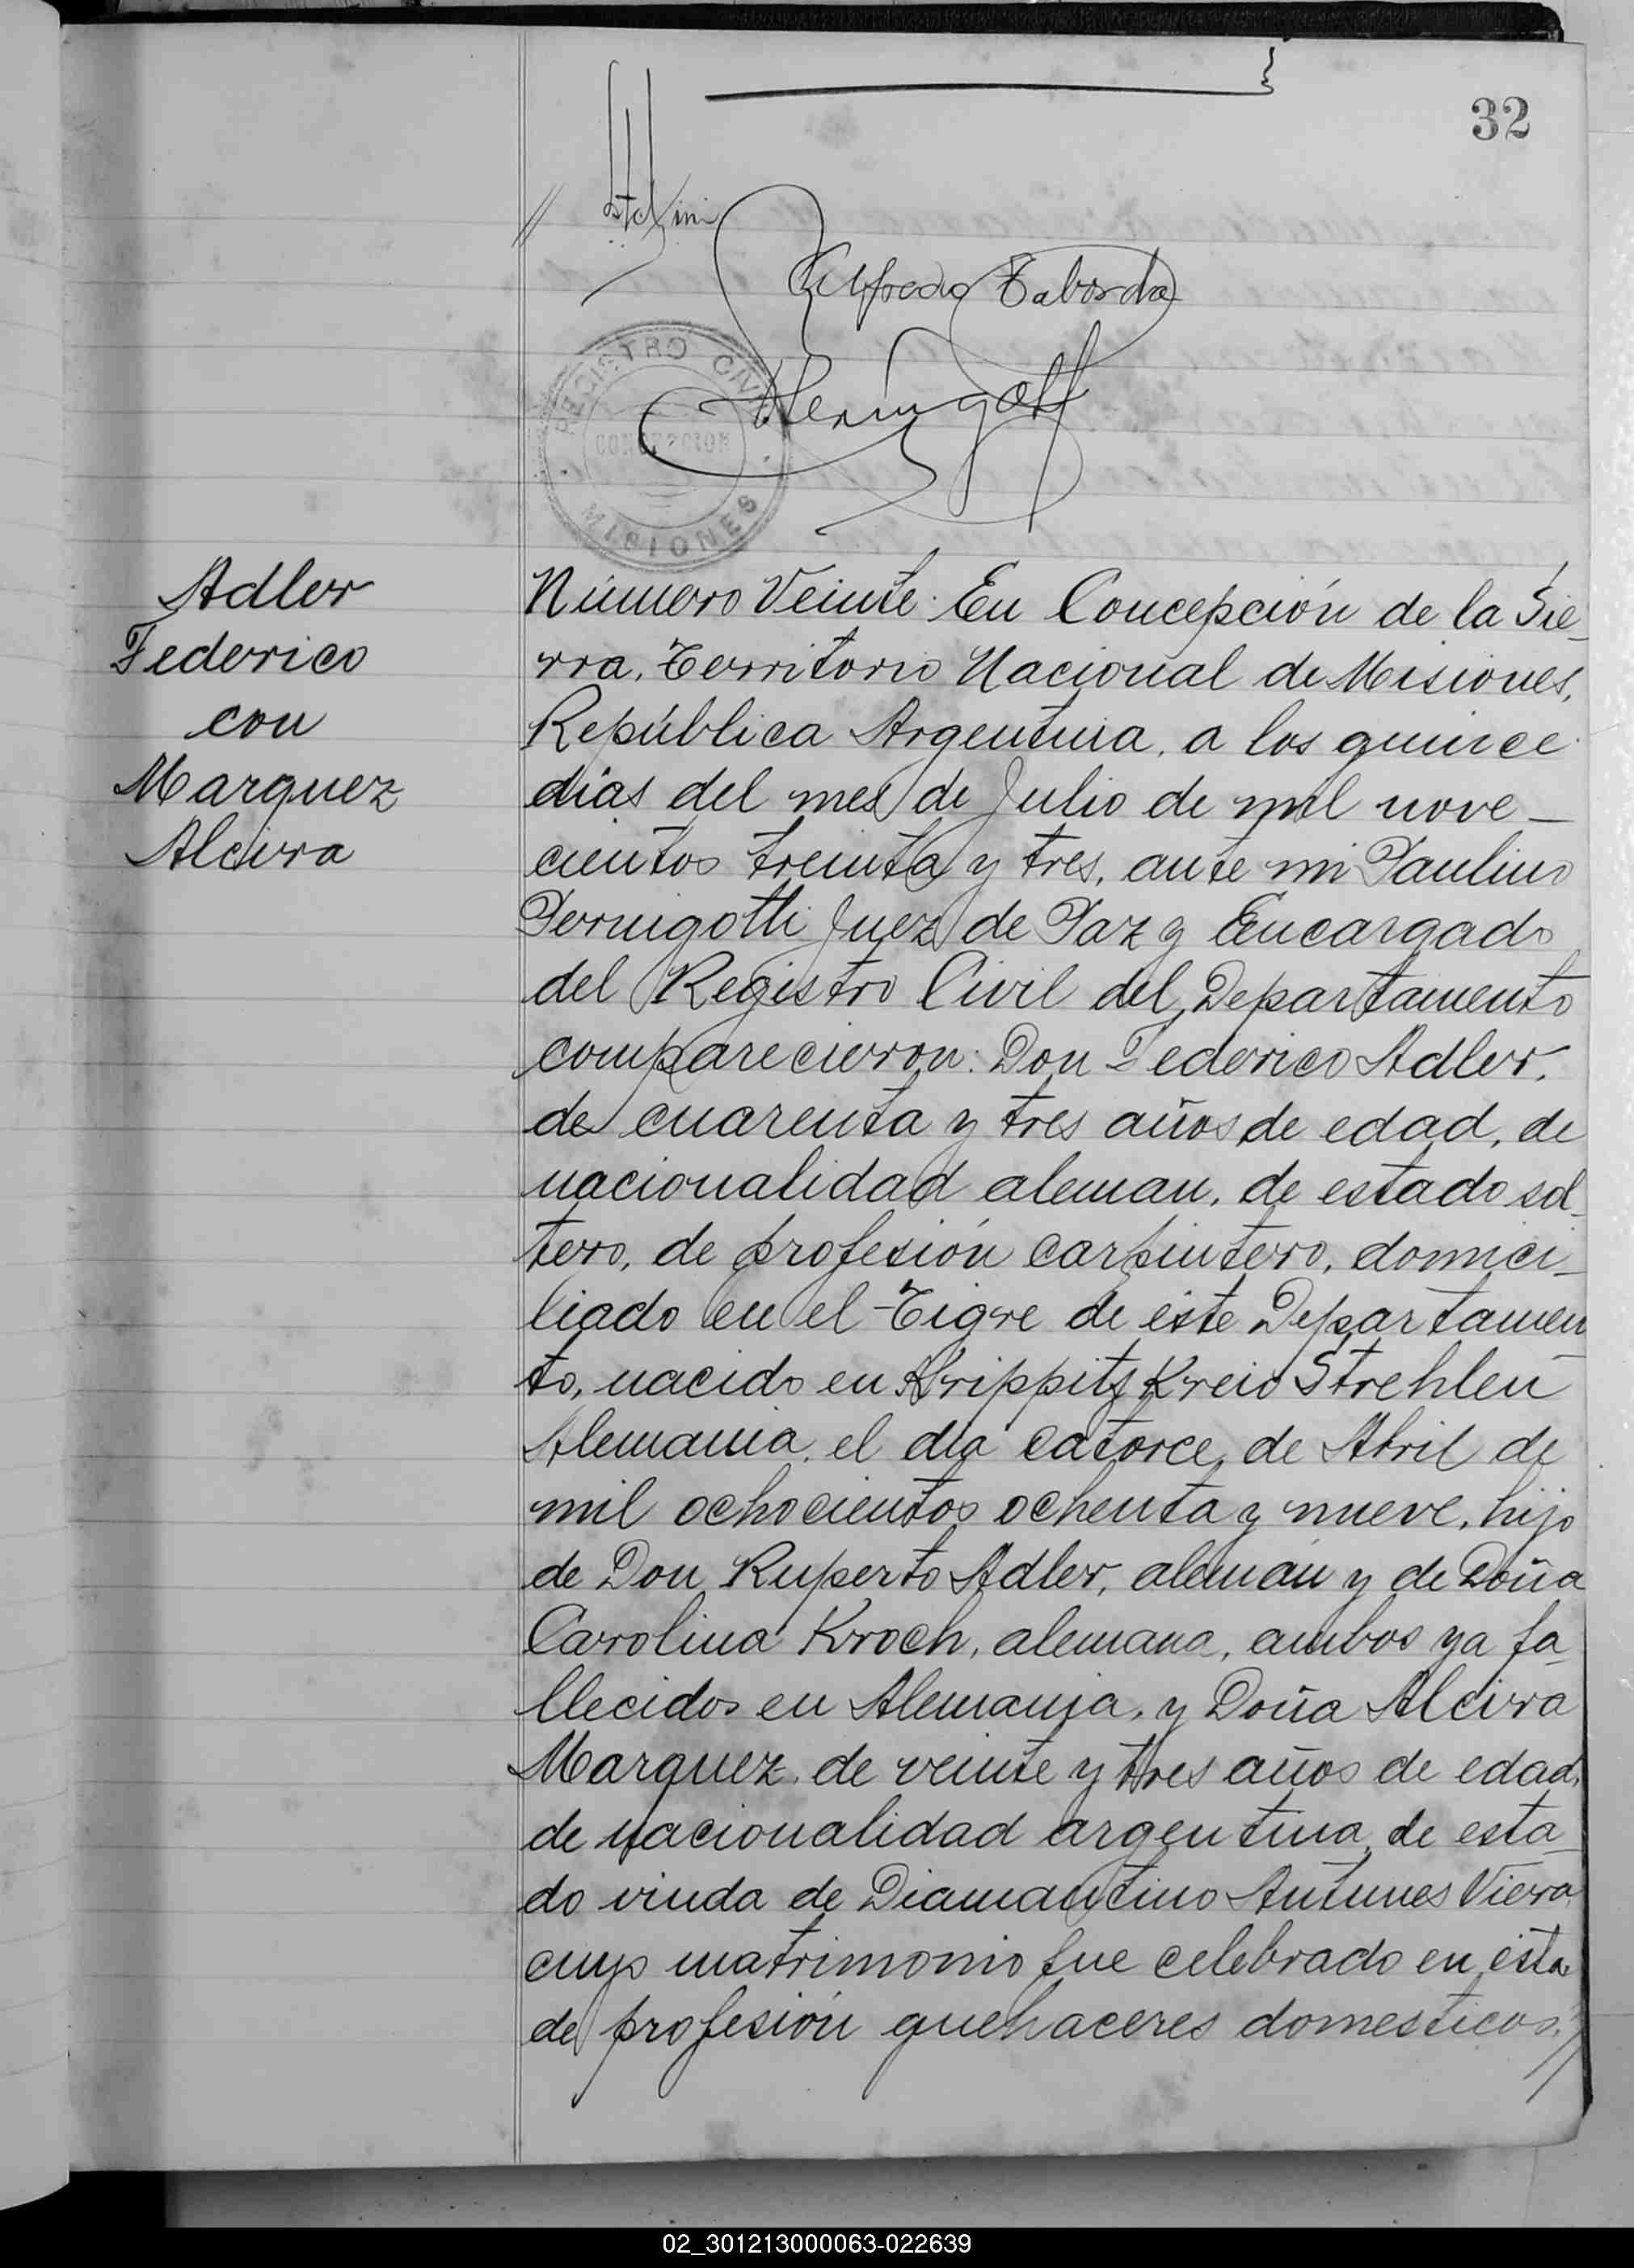 32
Alfredo Taborda
REGISTRO CIVIL
CONCEPCION
MISIONES
Adler
Federico
con
Marquez
Alcira
Número Veinte. En Concepción de la Sie_
rra, Territorio Nacional de Misiones,
República Argentina, a los quince
días del mes de Julio de mil nove_
cientos treinta y tres, ante mi Paulino
Pernigotti Juez de Paz y Encargado
del Registro Civil del Departamento
comparecieron: Don Federico Adler,
de cuarenta y tres años de edad, de
nacionalidad aleman, de estado sol_
tero, de profesión carpintero, domici_
liado en el Tigre de éste Departamen_
to, nacido en Krippitz Kreis Strehlen
Alemania, el día catorce de Abril de
mil ochocientos ochenta y nueve, hijo
de Don Ruperto Adler, alemán y de Doña
Carolina Kroch, alemana, ambos ya fa_
llecidos en Alemania, y Doña Alcira
Marquez, de veinte y tres años de edad,
de nacionalidad argentina, de esta_
do viuda de Diamantino Antunes Viera,
cuyo matrimonio fue celebrado en ésta,
de profesión quehaceres domesticos,//
02_301213000063-022639